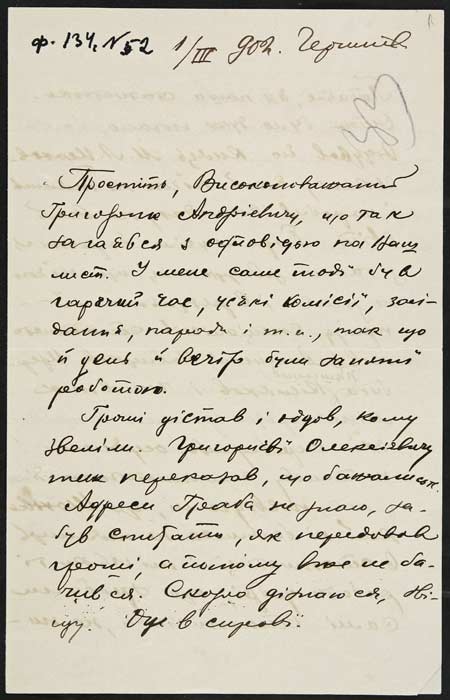 ф. 134, № 52
1/III 902. Чернигів
Простіть, Високоповажаний
Григорию Андрієвичу, що так
загаявся з одповідью на Ваш
лист. У мене саме тоді був
гарячий час, усякі комісії, засі-
дання, наради і т. и., так що
й день й вечір були заняті
роботою.
Гроші дістав і оддав, кому
звеліли. Григорієві Олексієвичу
теж переказав, що бажалося.
Адреси Граба не знаю, за-
був спитати, як передавав
гроші, а потому вже не ба-
чився. Скоро дізнаюся,
в справі.